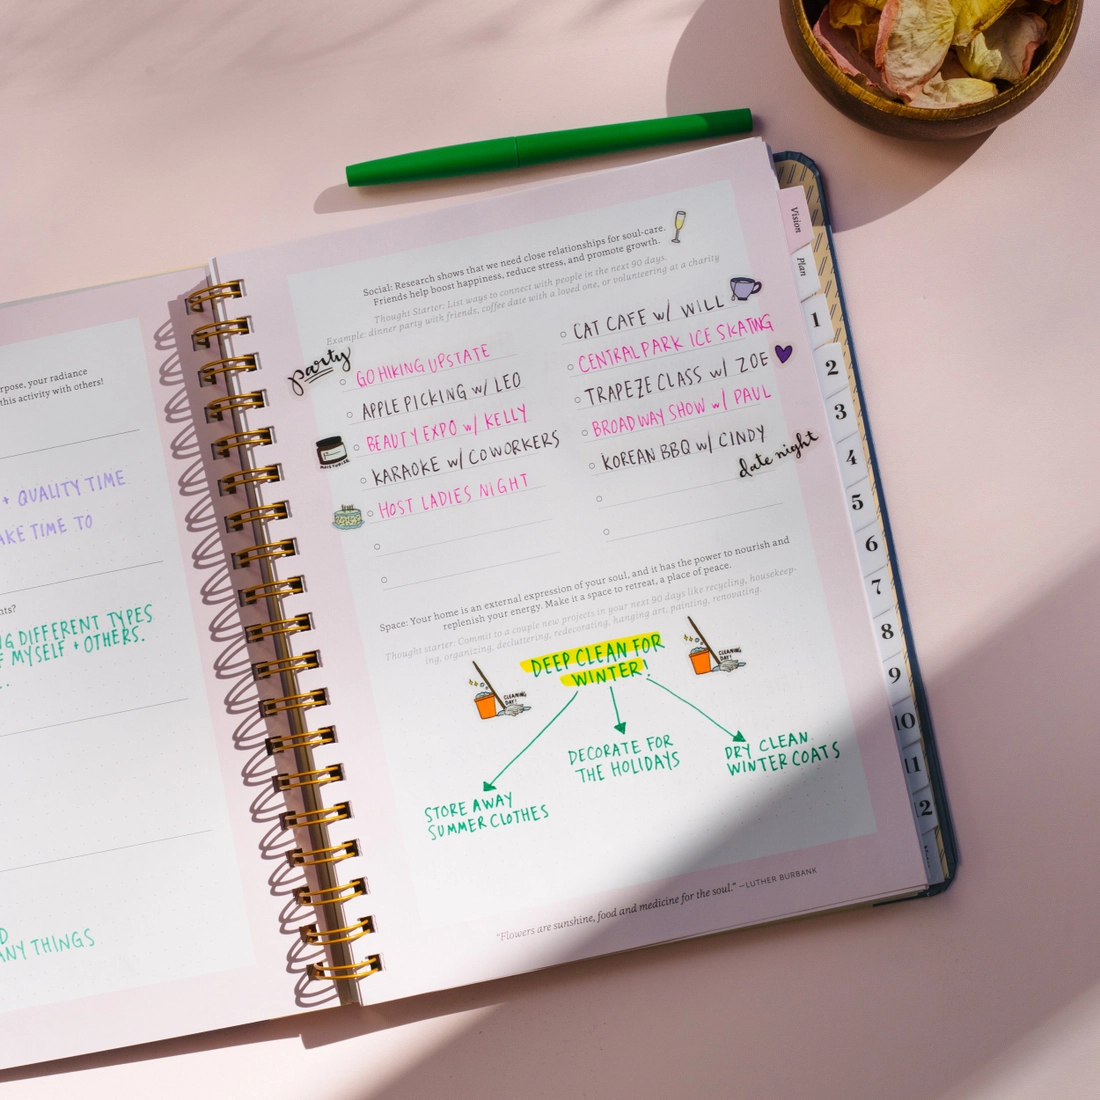 rpose, your radiance
this activity with others!
+ QUALITY TIME
AKE TIME TO
nts?
NG DIFFERENT TYPES
F MYSELF + OTHERS.
...
D
ANY THINGS
Social: Research shows that we need close relationships for soul-care.
Friends help boost happiness, reduce stress, and promote growth.
Thought Starter: List ways to connect with people in the next 90 days.
Example: dinner party with friends, coffee date with a loved one, or volunteering at a charity
party
GO HIKING UPSTATE
APPLE PICKING w/ LEO
BEAUTY EXPO w/ KELLY
MOISTURIZER
KARAOKE w/ COWORKERS
HOST LADIES NIGHT
CAT CAFE w/ WILL
CENTRAL PARK ICE SKATING
TRAPEZE CLASS w/ ZOE
BROADWAY SHOW w/ PAUL
KOREAN BBQ w/ CINDY
date night
Space: Your home is an external expression of your soul, and it has the power to nourish and
replenish your energy. Make it a space to retreat, a place of peace.
Thought starter: Commit to a couple new projects in your next 90 days like recycling, housekeep-
ing, organizing, decluttering, redecorating, hanging art, painting, renovating.
DEEP CLEAN FOR
WINTER!
CLEANING
DAY!
CLEANING
DAY!
STORE AWAY
SUMMER CLOTHES
DECORATE FOR
THE HOLIDAYS
DRY CLEAN
WINTER COATS
"Flowers are sunshine, food and medicine for the soul." –LUTHER BURBANK
Vision
Plan
1
2
3
4
5
6
7
8
9
10
11
12